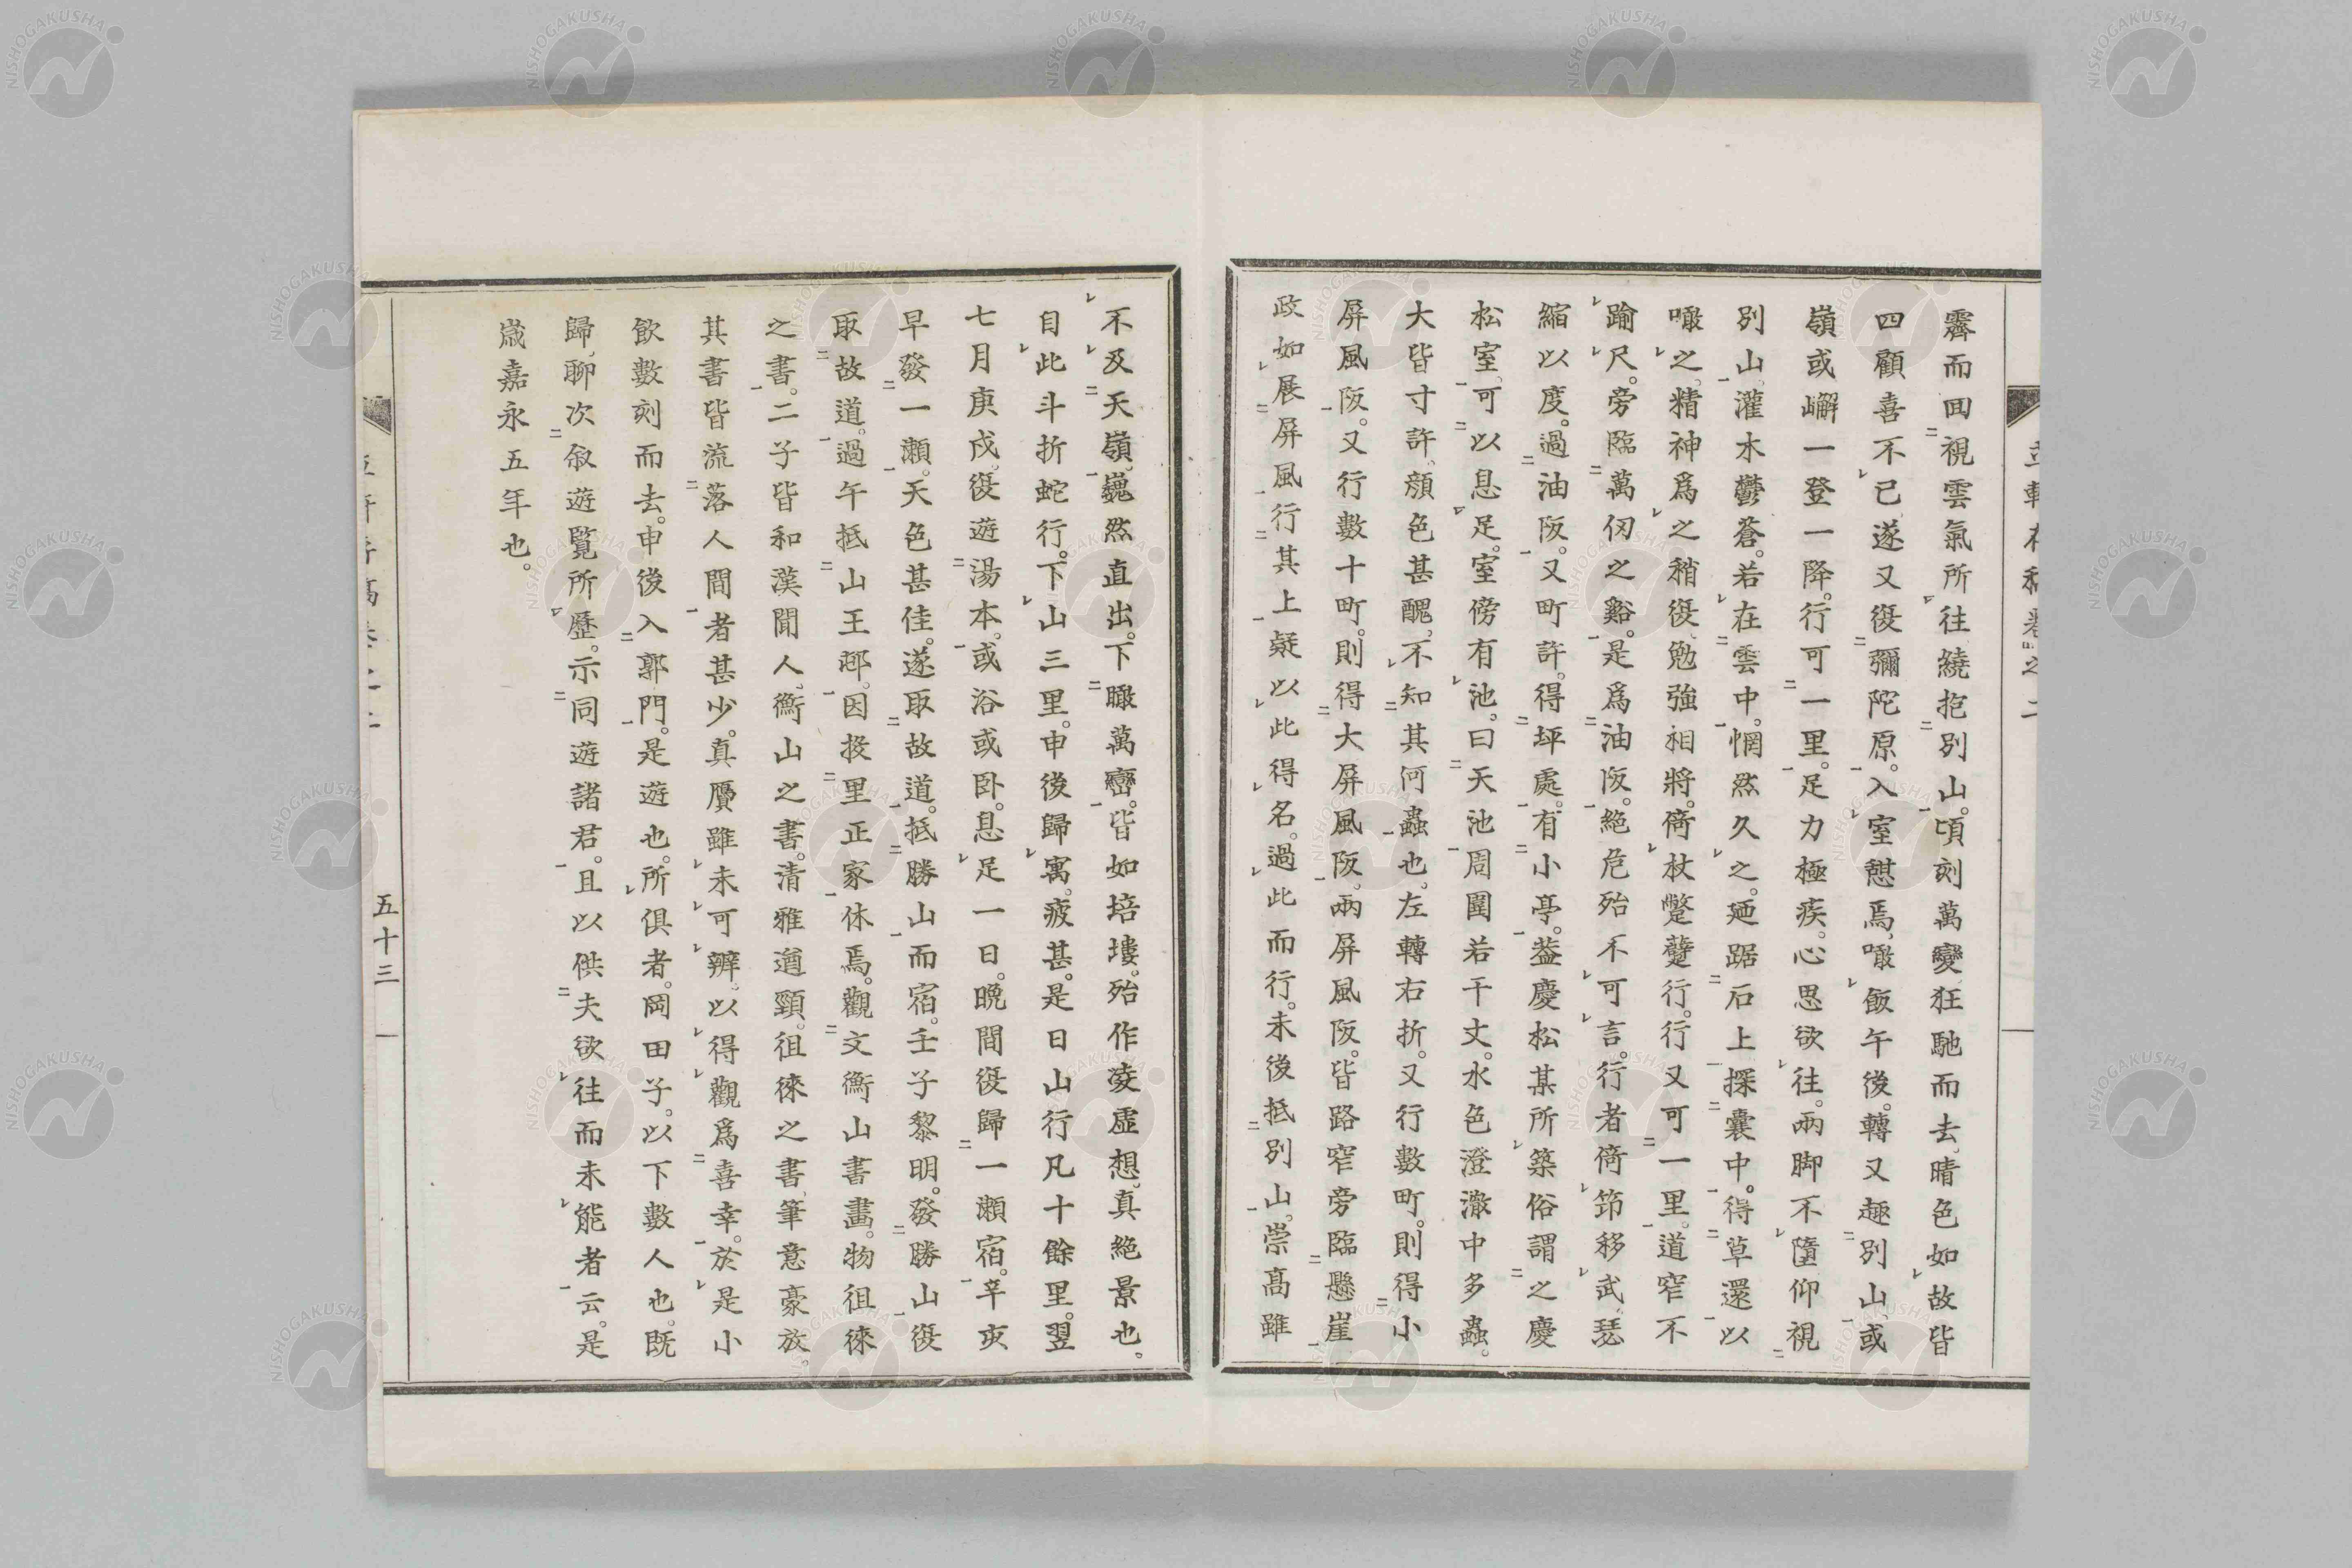 霽而回視雲氣所往繞抱別山。頃刻萬變狂馳而去、晴色如故皆
四顧喜不已遂又復彌陀原。入室憩焉、噉飯午後。轉又趣別山、或
嶺或嶰一登一降。行可一里。足力極疾。心思欲往。兩脚不隨仰視
別山、灌木鬱蒼。若在雲中。惘然久之。廼踞石上探囊中。得草還以
噉之、精神爲之稍復、勉強相將。倚杖蹩躠行。行又可一里。道窄不
踰尺。旁臨萬仞之谿。是爲油阪。絶危殆不可言。行者倚筇移武、瑟
縮以度。過油阪。又町許。得坪處。有小亭。蓋慶松某所築俗謂之慶
松室、可以息足。室傍有池、曰天池周圍若干丈。水色澄澈中多蟲。
大皆寸許、顏色甚醜、不知其何蟲也、左轉右折。又行數町。則得小
屏風阪。又行數十町。則得大屏風阪。兩屏風阪。皆路窄旁臨懸崖
政如展屏風行其上疑以此得名。過此而行。未後抵別山。崇高雖
不及天嶺、巍然直出。下瞰萬巒。皆如培塿。殆作凌虛想、真絶景也。
自此斗折蛇行。下山三里。申後歸寓。疲甚。是日山行凡十餘里。翌
七月庚戌、復遊湯本、或浴或臥。息足一日。晩間復歸一瀬宿。辛亥
早發一瀬。天色甚佳。遂取故道。抵勝山而宿。壬子黎明。發勝山復
取故道。過午抵山王邨。因投里正家休焉。觀文衡山書畫。物徂徠
之書。二子皆和漢聞人、衡山之書。清雅遒頸。徂徠之書、筆意豪放。
其書皆流落人間者甚少。真贋雖未可辨、以得觀爲喜幸。於是小
飲數刻而去。申後入郭門。是遊也。所俱者。岡田子。以下數人也。既
歸、聊次叙遊覽所歷。示同遊諸君。且以供夫欲往而未能者云。是
歳嘉永五年也。
五十三